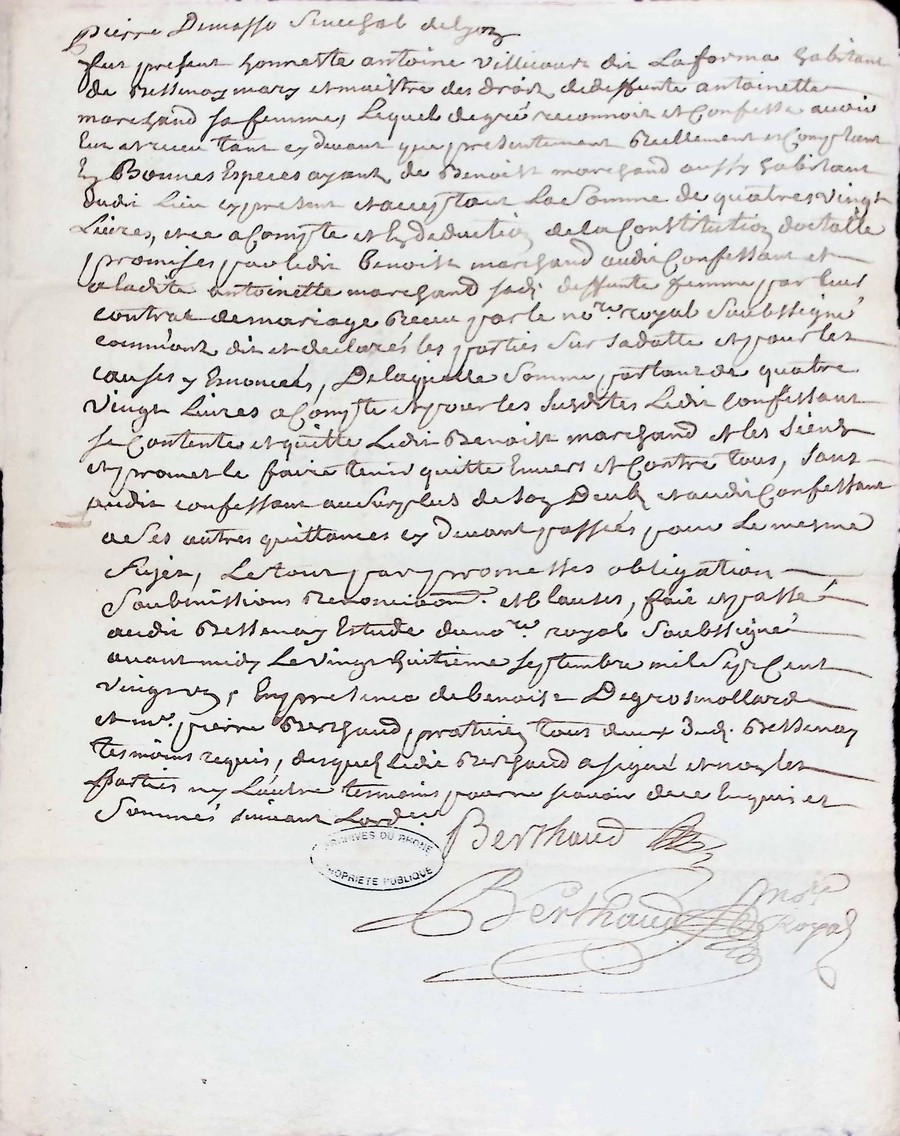 Pierre Demasso Senechal de Lyon
fut present honneste antoine Villicourt dit Laforma habitant
de Bessenay mary et maistre des droits de deffunte antoinette
marchand sa femme, Lequel de gré reconnoit et Confesse avoir
Eut et receu tant cy devant que presentement Reellement et Comptant
En Bonnes Especes ayant de Benoist marchand aussy habitant
dudit Lieu cy present et acceptant La Somme de quatres vingt
Livres, et ce a Compte et En deduction de la Constitution dotalle
promises par ledit benoist marchand audit Confessant et
a ladite antoinette marchand jadi deffunte femme par leur
contrat de mariage Receu par le no.re royal Soubssigné
comm'ont dit et declarés les parties sur sa dotte et pour les
causes y Enoncées, De laquelle somme partant de quatre
vingt Livres a Compte et pour les susdites Ledit confessant
se Contente et quitte Ledit Benoist marchand et les siens
et promet le faire tenir quitte Envers et Contre tous, sauf
audit confessant au Surplus de son Deub et audit Confessant
a ses autres quittances cy devant passées pour Le mesme
sujet, Le tout par promesses obligation
Soubmissions Renonciaon.s et Clauses, fait et passé
audit Bessenay Estude du no.re royal Soubssigné
avant midy Le vingt huitieme septembre mil Sept Cent
vingt , En presence de benoist Degrosmollard
et m.e pierre Berthaud, praticien tous deux dud. Bessenay
tesmoins requis, duquel Ledit Berthaud a signé et non les
parties ny L'autre tesmoins pour ne scavoir de ce Enquis et
Sommés suivant Lord.ce
Berthaud
Berthaud no.re Royal
ARCHIVES DU RHONE
PROPRIETE PUBLIQUE